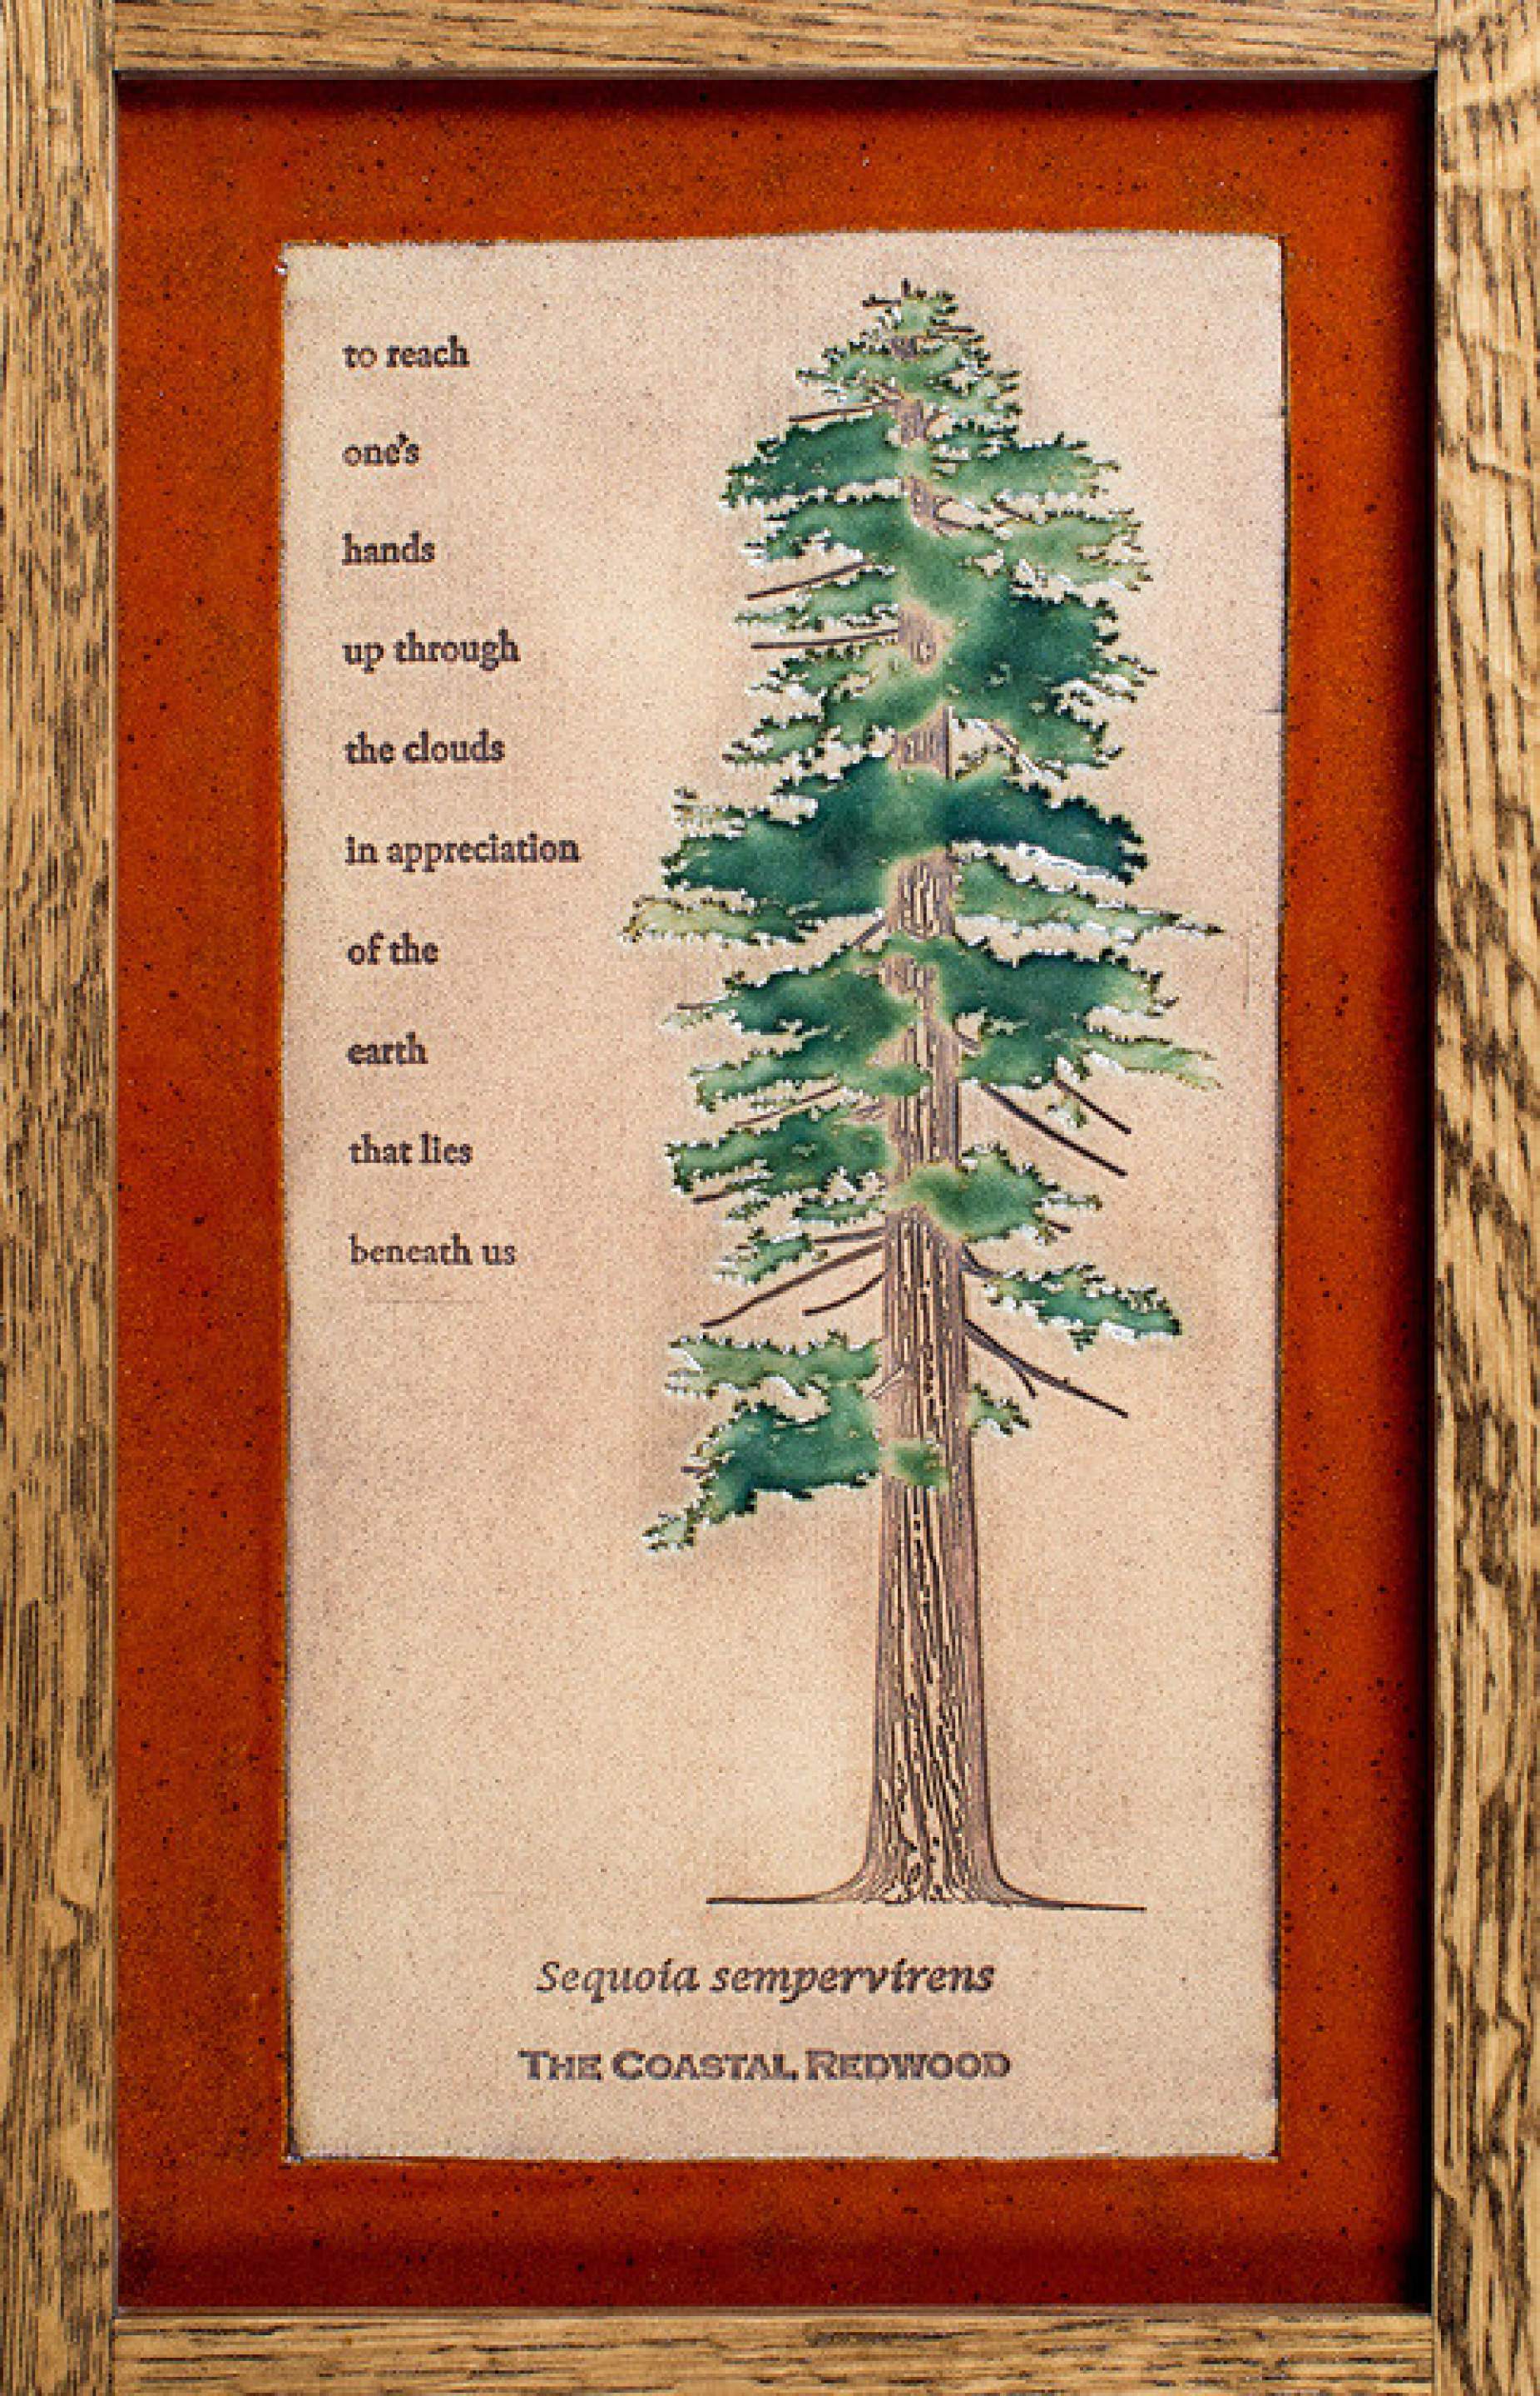 to reach
one's
hands
up through
the clouds
in appreciation
of the
earth
that lies
beneath us
Sequoia sempervirens
THE COASTAL REDWOOD